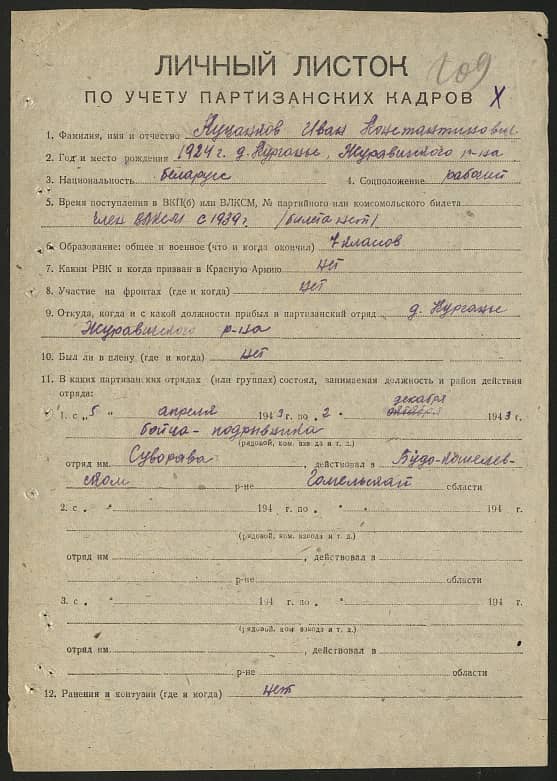 109
ЛИЧНЫЙ ЛИСТОК
ПО УЧЕТУ ПАРТИЗАНСКИХ КАДРОВ X
1. Фамилия, имя и отчество Иван Константинович
2. Год и место рождения 1924 г. д. Курганье, Журавичского р-на
3. Национальность беларус 4. Соцположение рабочий
5. Время поступления в ВКП(б) или ВЛКСМ, № партийного или комсомольского билета
член ВЛКСМ с 1939 г. (билета нет)
6. Образование: общее и военное (что и когда окончил) 7 класов
7. Каким РВК и когда призван в Красную Армию нет
8. Участие на фронтах (где и когда) нет
9. Откуда, когда и с какой должности прибыл в партизанский отряд д. Курганье
Журавичского р-на
10. Был ли в плену (где и когда) нет
11. В каких партизанских отрядах (или группах) состоял, занимаемая должность и район действия
отряда: декабря
1. с „5 " апреля 1943 г. по „2 " октября 1943 г.
бойца-подрывника
(рядовой, ком. взвода и т. д.)
отряд им. Суворова, действовал в Будо-Кошелев-
ском р-не Гомельской области
2. с „ " 194 г. по „ " 194 г.
(рядовой, ком. взвода и т. д.)
отряд им, действовал в
р-не области
3. с „ " 194 г. по „ " 194 г.
(рядовой, ком. взвода и т. д.)
отряд им., действовал в
р-не области
12. Ранения и контузии (где и когда) нет